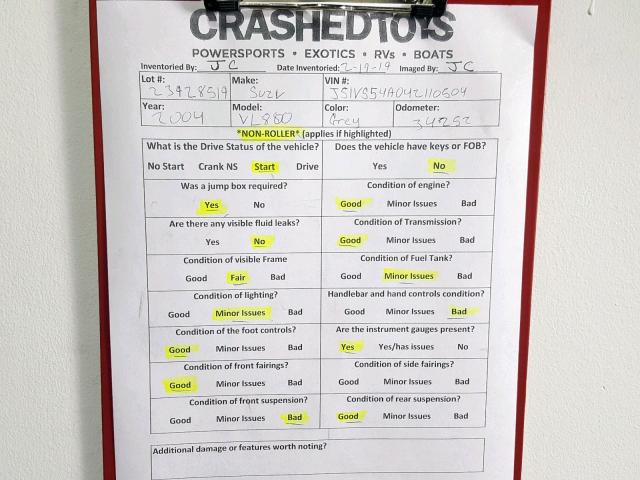 CRASHEDTOYS
POWERSPORTS • EXOTICS • RVs • BOATS
Inventoried By: JC Date Inventoried: 2-19-19 Imaged By: JC
Lot #: Make: VIN #:
23928519 Suzu JS1VS54A042110604
Year: Model: Color: Odometer:
2004 VL800 Grey 34252
*NON-ROLLER* (applies if highlighted)
What is the Drive Status of the vehicle? Does the vehicle have keys or FOB?
No Start Crank NS Start Drive Yes No
Was a jump box required? Condition of engine?
Yes No Good Minor Issues Bad
Are there any visible fluid leaks? Condition of Transmission?
Yes No Good Minor Issues Bad
Condition of visible Frame Condition of Fuel Tank?
Good Fair Bad Good Minor Issues Bad
Condition of lighting? Handlebar and hand controls condition?
Good Minor Issues Bad Good Minor Issues Bad
Condition of the foot controls? Are the instrument gauges present?
Good Minor Issues Bad Yes Yes/has issues No
Condition of front fairings? Condition of side fairings?
Good Minor Issues Bad Good Minor Issues Bad
Condition of front suspension? Condition of rear suspension?
Good Minor Issues Bad Good Minor Issues Bad
Additional damage or features worth noting?